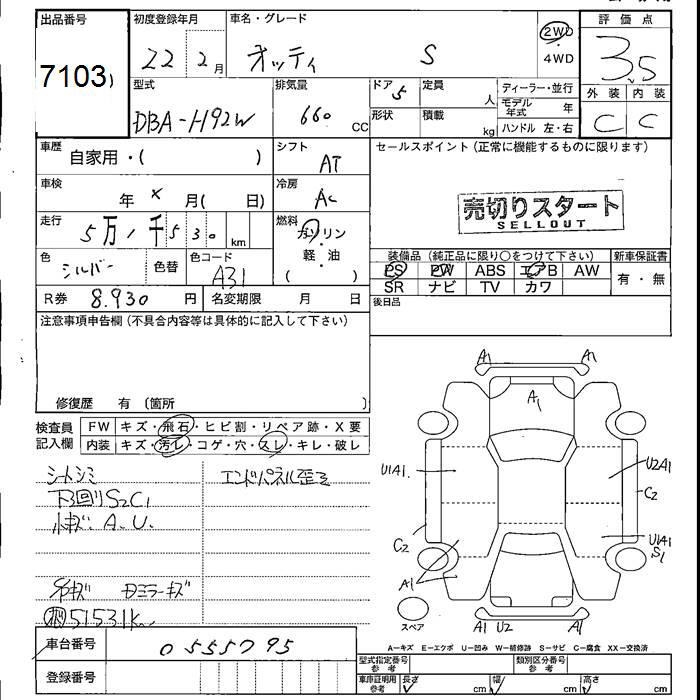 出品番号 初度登録年月 車名・グレード 評価点
7103 22 2月 オッティ S 2WD・4WD 3.5
型式 排気量 ドア 5 定員 人 ディーラー・並行 外装 内装
DBA-H92W 660 CC 形状 積載 kg モデル年式 年 C C
ハンドル 左・右
車歴 自家用・( ) シフト AT セールスポイント (正常に機能するものに限ります)
車検 年 × 月( 日) 冷房 AC
売切りスタート
SELLOUT
走行 5万1千530 km 燃料 ガソリン・軽油 ( )
色 シルバー 色替 色コード A31
装備品 (純正品に限り○をつけて下さい) 新車保証書
PS PW ABS エアB AW 有・無
SR ナビ TV カワ
R券 8.930 円 名変期限 月 日 後日品
注意事項申告欄 (不具合内容等は具体的に記入して下さい)
修復歴 有 (箇所 )
検査員記入欄 FW キズ・飛石・ヒビ割・リペア跡・X要
内装 キズ・汚レ・コゲ・穴・スレ・キレ・破レ
シートシミ エンドパネル歪ミ
下回りS2C1
小キズ. A. U.
51531km
A1 A1
A1
U1A1. U2A1
C2
C2 U1A1
S1
A1
スペア A1 U2 A1
A-キズ E-エクボ U-凹み W-補修跡 S-サビ C-腐食 XX-交換済
車台番号 0555795
登録番号
型式指定番号 参考 類別区分番号 参考
車庫証明用 参考 長さ cm 幅 cm 高さ cm